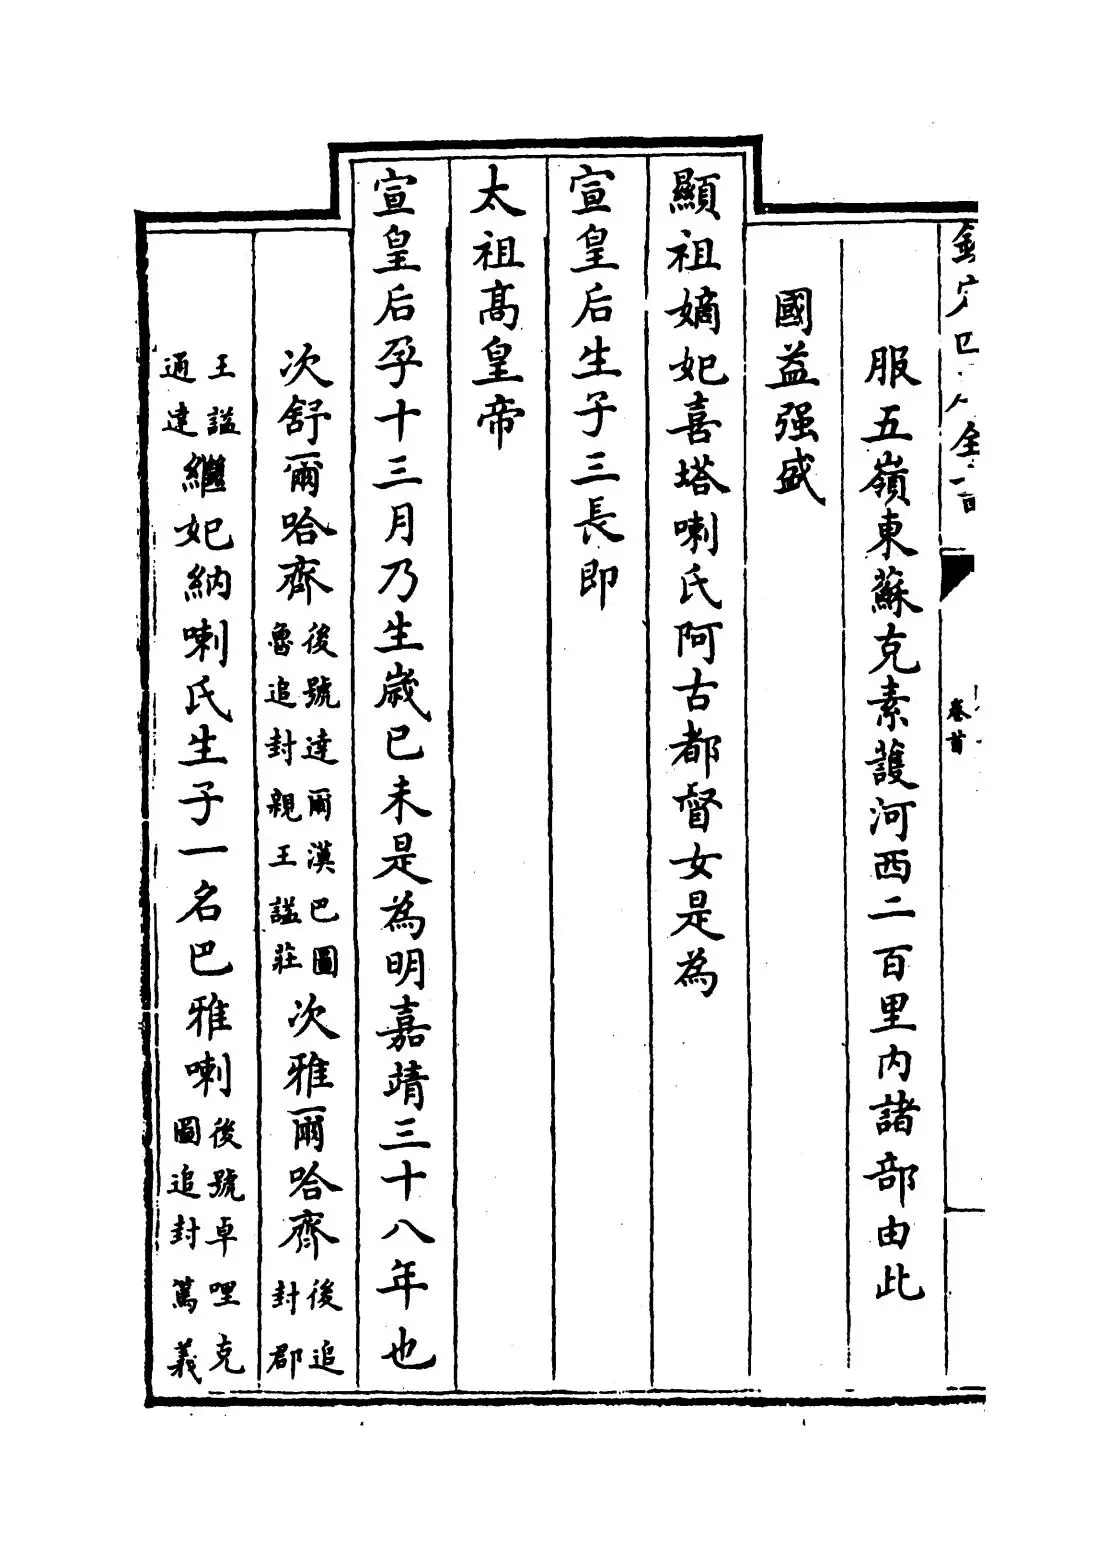 服五嶺東蘇克素護河西二百里内諸部由此
國益强盛
顯祖嫡妃喜塔喇氏阿古都督女是為
宣皇后生子三長即
太祖高皇帝
宣皇后孕十三月乃生歲已未是為明嘉靖三十八年也
次舒爾哈齊後號達爾漢巴圖魯追封親王諡莊次雅爾哈齊後追封郡
王諡通達繼妃納喇氏生子一名巴雅喇後號卓哩克圖追封篤義
卷首